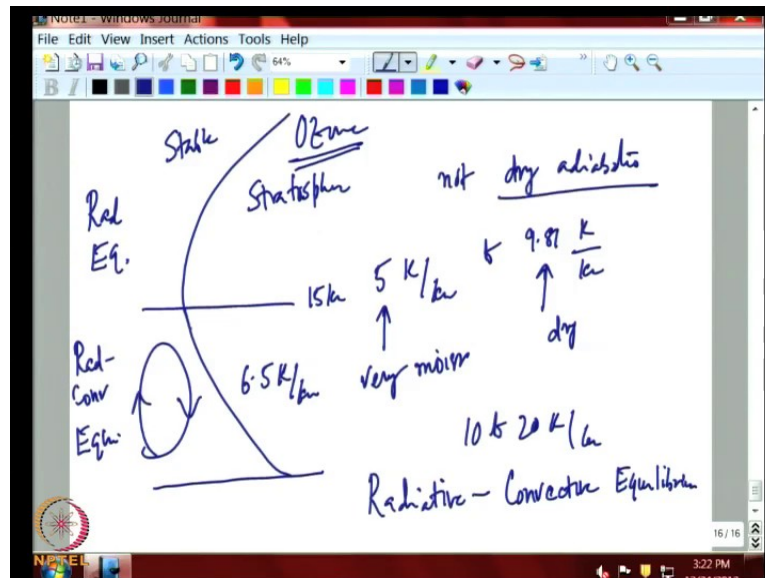 Note1 - Windows Journal
File Edit View Insert Actions Tools Help
64%
B I
Stable
Ozone
Stratospher
not dry adiabatic
Rad
Eq.
15 km
5 K/km
to 9.81 K/km
dry
very moist
6.5 K/km
Rad-
Conv
Equi.
10 to 20 K/km
Radiative - Convective Equilibrium
16 / 16
NPTEL
3:22 PM